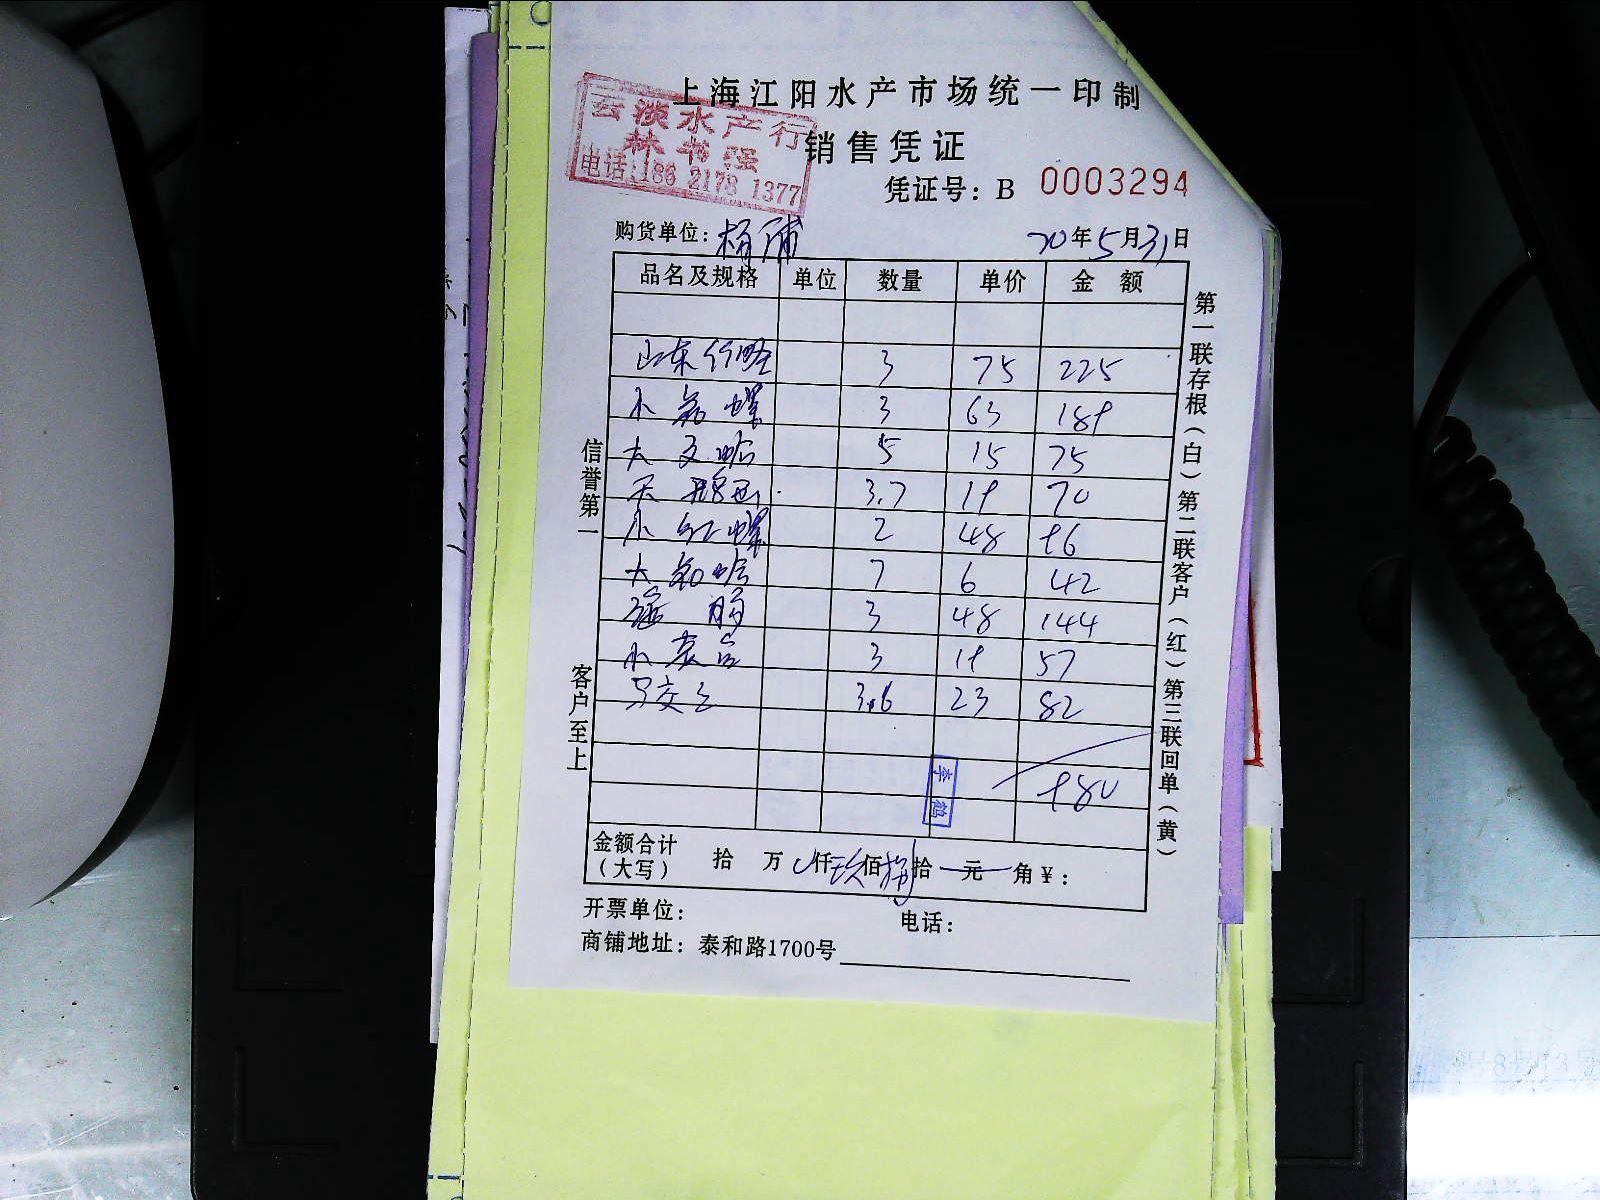 上海江阳水产市场统一印制
云淡水产行
林书强
电话:186 2178 1377
销售凭证
凭证号：B 0003294
购货单位：杨浦 20年5月31日
品名及规格 单位 数量 单价 金额
山东竹蛏 3 75 225
小 螺 3 63 189
大 文蛤 5 15 75
天 鹅 3.7 19 70
小 红螺 2 48 96
大 蛤 7 6 42
3 48 144
小 3 19 57
3.6 23 82
980
李鹤
金额合计（大写） 拾 万 仟玖佰捌拾 元 角￥：
开票单位： 电话：
商铺地址：泰和路1700号
信誉第一
客户至上
第一联存根（白）第二联客户（红）第三联回单（黄）